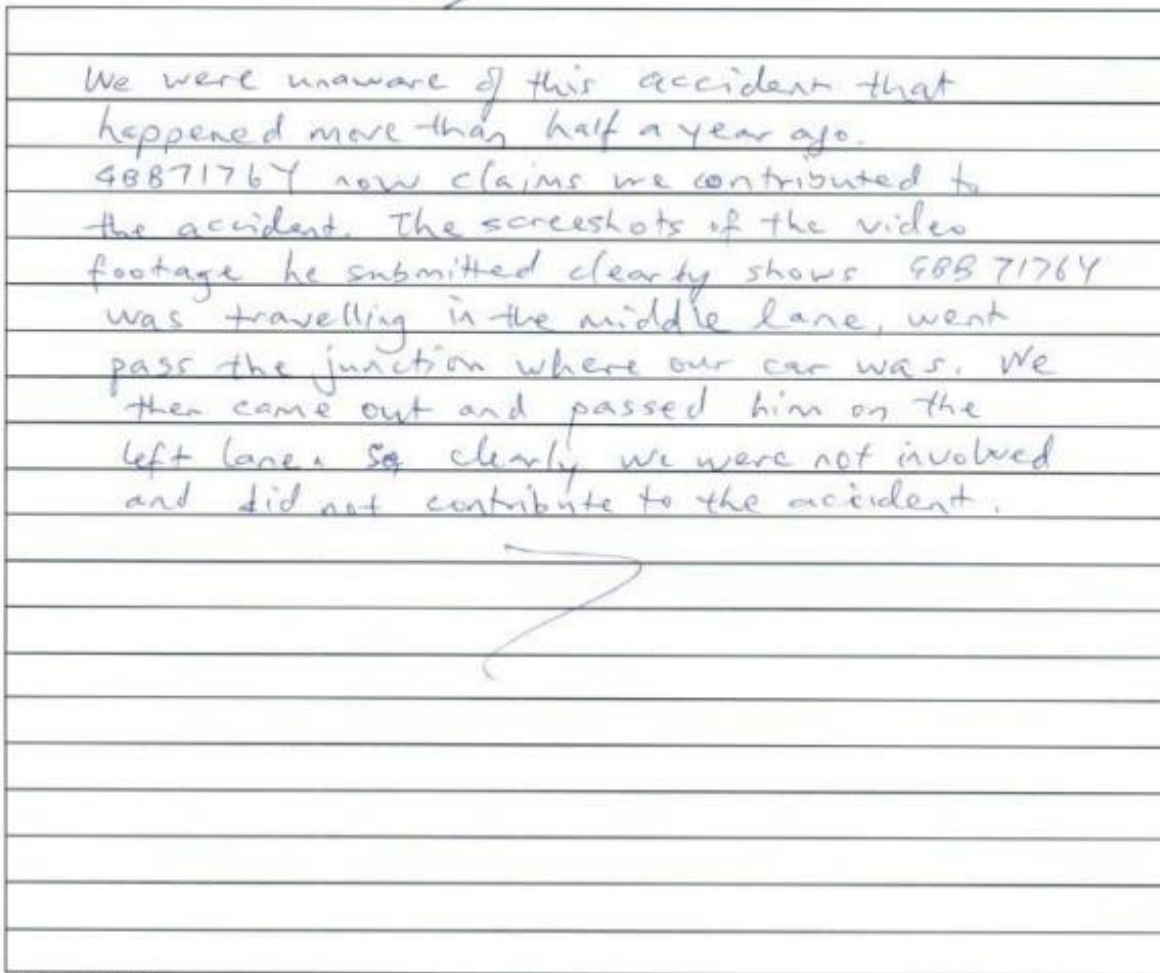 We were unaware of this accident that
happened more than half a year ago.
GBB7176Y now claims we contributed to
the accident. The screeshots of the video
footage he submitted clearly shows GBB 7176Y
was travelling in the middle lane, went
pass the junction where our car was. We
then came out and passed him on the
left lane. So clearly we were not involved
and did not contribute to the accident.